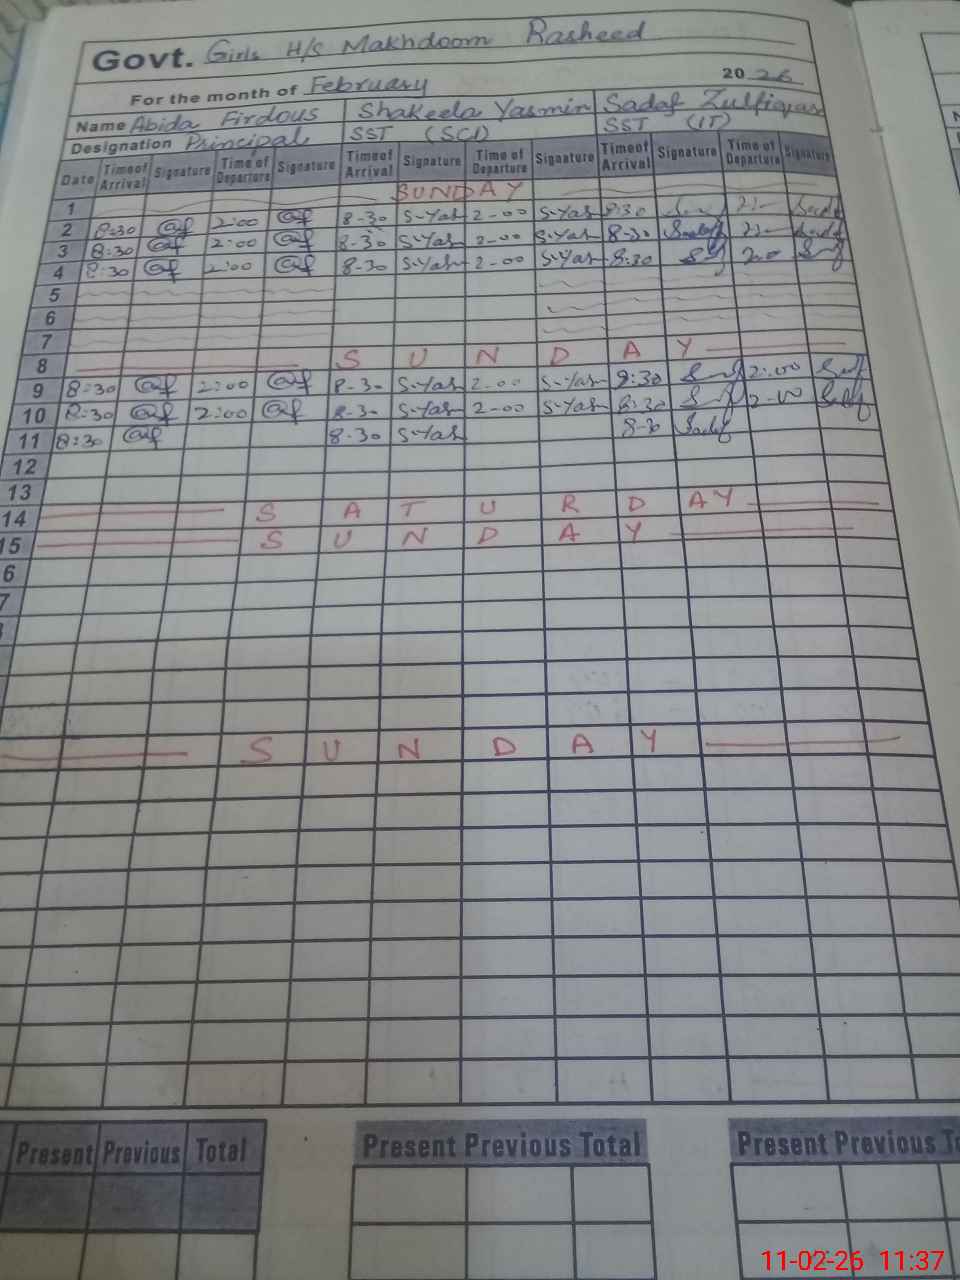 Govt. Girls H/S Makhdoom Rasheed
For the month of February 2026
Name Abida Firdous Shakeela Yasmin Sadaf Zulfiqar
Designation Principal SST (SCI) SST (IT)
Date Time of Arrival Signature Time of Departure Signature Time of Arrival Signature Time of Departure Signature Time of Arrival Signature Time of Departure Signature
1 SUNDAY
2 8:30 2:00 8-30 S-Yas 2-00 S-Yas 8:30
3 8:30 2:00 8-30 S-Yas 2-00 S-Yas 8-30
4 8:30 2:00 8-30 S-Yas 2-00 S-Yas 8:30
5
6
7
8 SUNDAY
9 8:30 2:00 8-30 S-Yas 2-00 S-Yas 8:30 2:00
10 8:30 2:00 8-30 S-Yas 2-00 S-Yas 8:30 2-00
11 8:30 8-30 S-Yas 8-30 Sadaf
12
13
14 SATURDAY
15 SUNDAY
6
7
SUNDAY
Present Previous Total Present Previous Total Present Previous
11-02-26 11:37